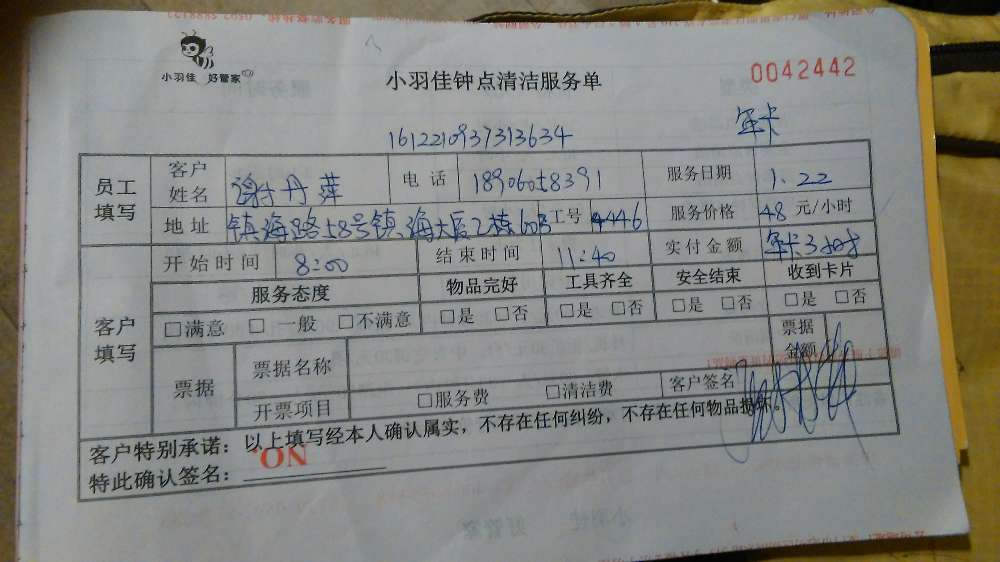 小羽佳 好管家
小羽佳钟点清洁服务单
0042442
1612210937313634
年卡
员工填写
客户姓名 谢丹萍 电话 18906058391 服务日期 1.22
地址 镇海路58号镇海大厦2栋603 工号 4446 服务价格 48 元/小时
客户填写
开始时间 8:00 结束时间 11:40 实付金额 年卡3小时
服务态度 物品完好 工具齐全 安全结束 收到卡片
□满意 □一般 □不满意 □是 □否 □是 □否 □是 □否 □是 □否
票据 票据名称 票据金额
开票项目 □服务费 □清洁费 客户签名
客户特别承诺：以上填写经本人确认属实，不存在任何纠纷，不存在任何物品损坏。
特此确认签名：
NO.
小羽佳 好管家